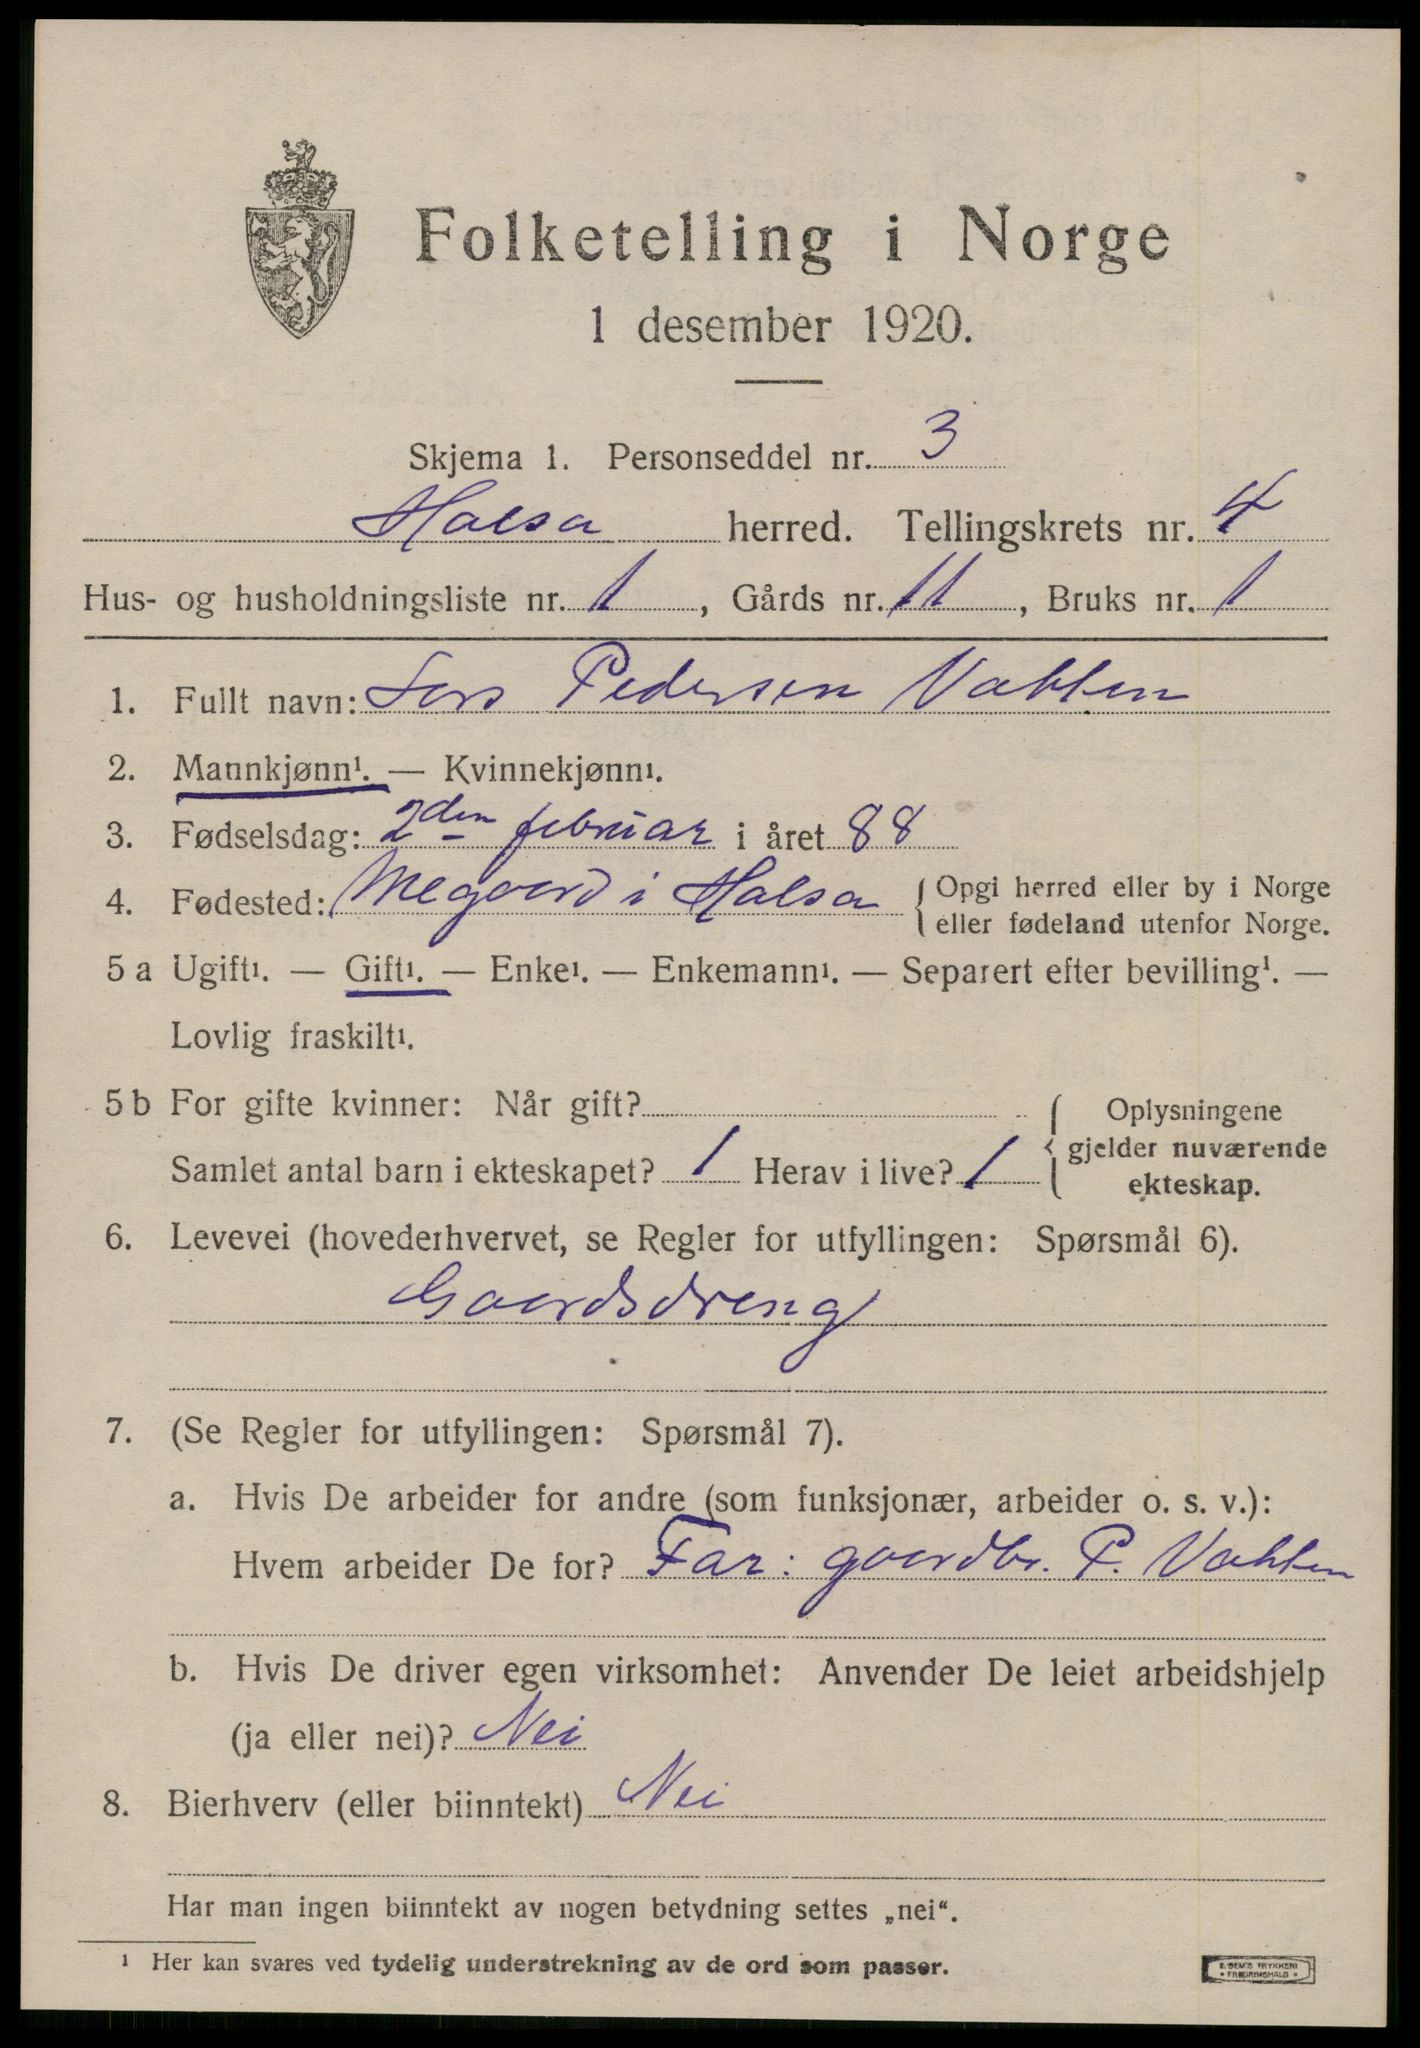 Folketelling i Norge
1 desember 1920.
Skjema 1. Personseddel nr. 3
Halsa herred. Tellingskrets nr. 4
Hus- og husholdningsliste nr. 1, Gårds nr. 11, Bruks nr. 1
1. Fullt navn: Lars Pedersen Vaklen
2. Mannkjønn¹. — Kvinnekjønn¹.
3. Fødselsdag: 2den februar i året 88
4. Fødested: Megaard i Halsa { Opgi herred eller by i Norge
eller fødeland utenfor Norge.
5 a Ugift¹. — Gift¹. — Enke¹. — Enkemann¹. — Separert efter bevilling¹. —
Lovlig fraskilt¹.
5 b For gifte kvinner: Når gift? { Oplysningene
gjelder nuværende
ekteskap.
Samlet antal barn i ekteskapet? 1 Herav i live? 1
6. Levevei (hovederhvervet, se Regler for utfyllingen: Spørsmål 6).
Gaardsdreng
7. (Se Regler for utfyllingen: Spørsmål 7).
a. Hvis De arbeider for andre (som funksjonær, arbeider o. s. v.):
Hvem arbeider De for? Far: gaardbr. P. Vaklen
b. Hvis De driver egen virksomhet: Anvender De leiet arbeidshjelp
(ja eller nei)? Nei
8. Bierhverv (eller biinntekt) Nei
Har man ingen biinntekt av nogen betydning settes „nei“.
¹ Her kan svares ved tydelig understrekning av de ord som passer.
E. SEM'S TRYKKERI
• FREDRIKSHALD •